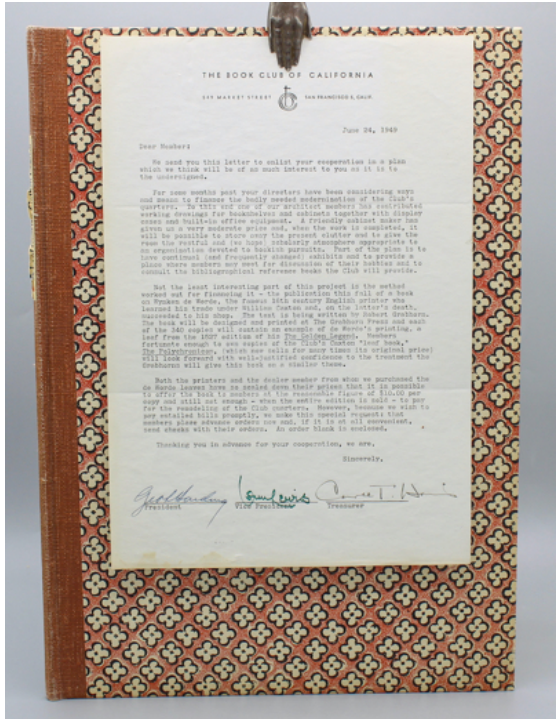 THE BOOK CLUB OF CALIFORNIA
MARKET STREET SAN FRANCISCO 5, CALIF.
June 24, 1949
Dear Member:
We send you this letter to enlist your cooperation in a plan
which we think will be of as much interest to you as it is to
the undersigned.
For some months past your directors have been considering ways
and means to finance the badly needed modernization of the Club's
quarters. To this end one of our architect members has contributed
working drawings for bookshelves and cabinets together with display
cases and built-in office equipment. A friendly cabinet maker has
given us a very moderate price and, when the work is completed, it
will be possible to store away the present clutter and to give the
room the restful and (we hope) scholarly atmosphere appropriate to
an organization devoted to bookish pursuits. Part of the plans is to
have continual (and frequently changed) exhibits and to provide a
place where members may meet for discussion of their hobbies and to
consult the bibliographical reference books the Club will provide.
Not the least interesting part of this project is the method
worked out for financing it - the publication this fall of a book
on Wynken de Worde, the famous 16th century English printer who
learned his trade under William Caxton and, on the latter's death,
succeeded to his shop. The text is being written by Robert Grabhorn.
The book will be designed and printed at The Grabhorn Press and each
of the 340 copies will contain an example of de Worde's printing, a
leaf from the 1527 edition of his The Golden Legend. Members
fortunate enough to own copies of the Club's Caxton "leaf book,"
The Polychronicon, (which now sells for many times its original price)
will look forward with well-justified confidence to the treatment the
Grabhorns will give this book on a similar theme.
Both the printers and the dealer member from whom we purchased the
de Worde leaves have so scaled down their prices that it is possible
to offer the book to members at the reasonable figure of $10.00 per
copy and still net enough - when the entire edition is sold - to pay
for the remodeling of the Club quarters. However, because we wish to
pay entailed bills promptly, we make this special request: that
members place advance orders now and, if it is at all convenient,
send checks with their orders. An order blank is enclosed.
Thanking you in advance for your cooperation, we are,
Sincerely,
President Vice President Treasurer